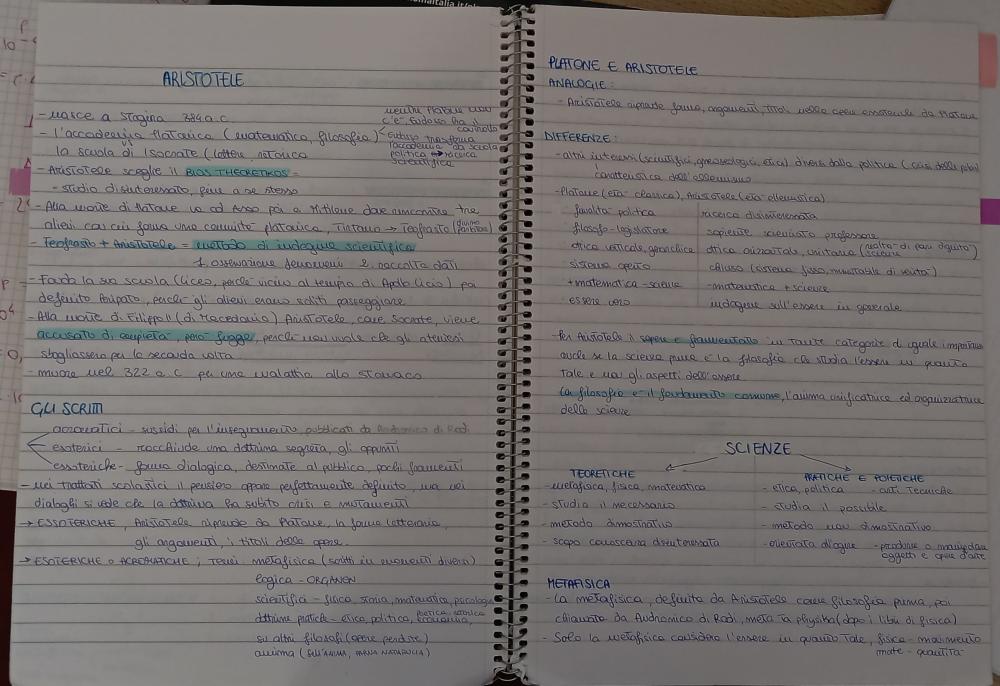 ARISTOTELE
- nasce a Stagira 384 a.c
- l'accademia platonica (matematica, filosofia)
vs
la scuola di Isocrate (lettere, retorica
mentre Platone non
c'è, Eudosso ha il
controllo
Eudosso trasforma
l'accademia da scuola
politica → ricerca
scientifica
- Aristotele sceglie il BIOS THEORETIKOS =
- studio disinteressato, fine a se stesso
- Alla morte di Platone va ad Asso poi a Mitilene dove incontra tre
alievi con cui forma una comunità platonica, Tirtamo → Teofrasto (divino parlatore)
- Teofrasto + Aristotele = metodo di indagine scientifica
1. osservazione fenomeni 2. raccolta dati
- Fonda la sua scuola (liceo, perchè vicino al tempio di Apollo Licio) poi
definito Peripato, perchè gli alievi erano soliti passeggiare
- Alla morte di Filippo II (di Macedonia) Aristotele, come Socrate, viene
accusato di empietà, però fugge, perchè non vuole che gli ateniesi
sbagliassero per la seconda volta
- muore nel 322 a.c per una malattia allo stomaco
GLI SCRITTI
acroamatici - sussidi per l'insegnamento, pubblicati da Andronico di Rodi
esoterici - racchiude una dottrina segreta, gli appunti
essoteriche - forma dialogica, destinate al pubblico, pochi frammenti
- nei trattati scolastici il pensiero appare perfettamente definito, ma nei
dialoghi si vede che la dottrina ha subito crisi e mutamenti
→ ESSOTERICHE, Aristotele riprende da Platone, la forma letteraria,
gli argomenti, i titoli delle opere.
→ ESOTERICHE o ACROAMATICHE; temi metafisica (scritti in momenti diversi)
logica - ORGANON
scientifici - fisica, storia, matematica, psicologia
dottrine pratiche - etica, politica, economia, poetica, retorica
su altri filosofi (opere perdute)
anima (SULL'ANIMA, PARVA NATURALIA)
PLATONE E ARISTOTELE
ANALOGIE:
- Aristotele riprende forma, argomenti, titoli nelle opere essoteriche da Platone
DIFFERENZE:
- altri interessi (scientifici, gnoseologici, etica) diversi dalla politica (crisi della polis)
caratteristica dell'ellenismo
- Platone (età classica), Aristotele (età ellenistica)
finalità politica ricerca disinteressata
filosofo-legislatore sapiente scienziato professore
ottica verticale, gerarchica ottica orizzontale, unitaria (scienze tutte di pari dignità)
sistema aperto chiuso (sistema fisso, immutabile di verità)
+ matematica - scienze - matematica + scienze
essere vero indagine sull'essere in generale
- Per Aristotele il sapere è frammentato in tante categorie di uguale importanza
anche se la scienza prima è la filosofia che studia l'essere in quanto
tale e non gli aspetti dell'essere
La filosofia è il fondamento comune, l'anima unificatrice ed organizzatrice
delle scienze
SCIENZE
TEORETICHE
- metafisica, fisica, matematica
- studia il necessario
- metodo dimostrativo
- scopo conoscenza disinteressata
PRATICHE E POIETICHE
- etica, politica - arti tecniche
- studia il possibile
- metodo non dimostrativo
- orientata all'agire - produrre o manipolare
oggetti e opere d'arte
METAFISICA
- La metafisica, definita da Aristotele come filosofia prima, poi
chiamata da Andronico di Rodi, metà ta physika (dopo i libri di fisica)
- Solo la metafisica considera l'essere in quanto tale, fisica - movimento
mate - quantità